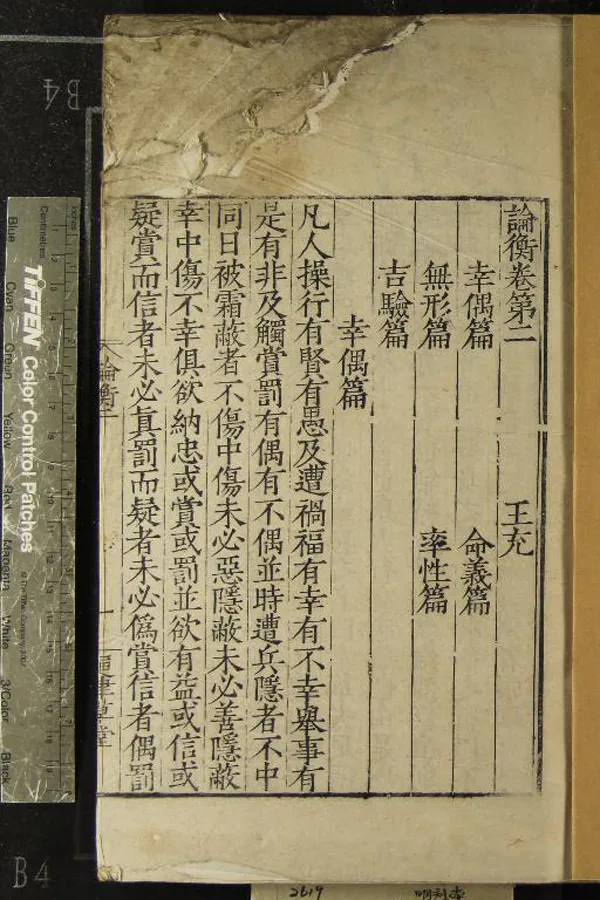 論衡卷第二 王充
幸偶篇 命義篇
無形篇 率性篇
吉驗篇
幸偶篇
凡人操行有賢有愚及遭禍福有幸有不幸舉事有
是有非及觸賞罰有偶有不偶並時遭兵隱者不中
同日被霜蔽者不傷中傷未必惡隱蔽未必善隱蔽
幸中傷不幸俱欲納忠或賞或罰並欲有益或信或
疑賞而信者未必真罰而疑者未必偽賞信者偶罰
論衡二
一
草堂
B4
B4
TIFFEN Color Control Patches
© The Tiffen Company, 2007
Centimetres
Blue
Cyan
Green
Yellow
Red
Magenta
White
3/Color
Black
2619 明刻本